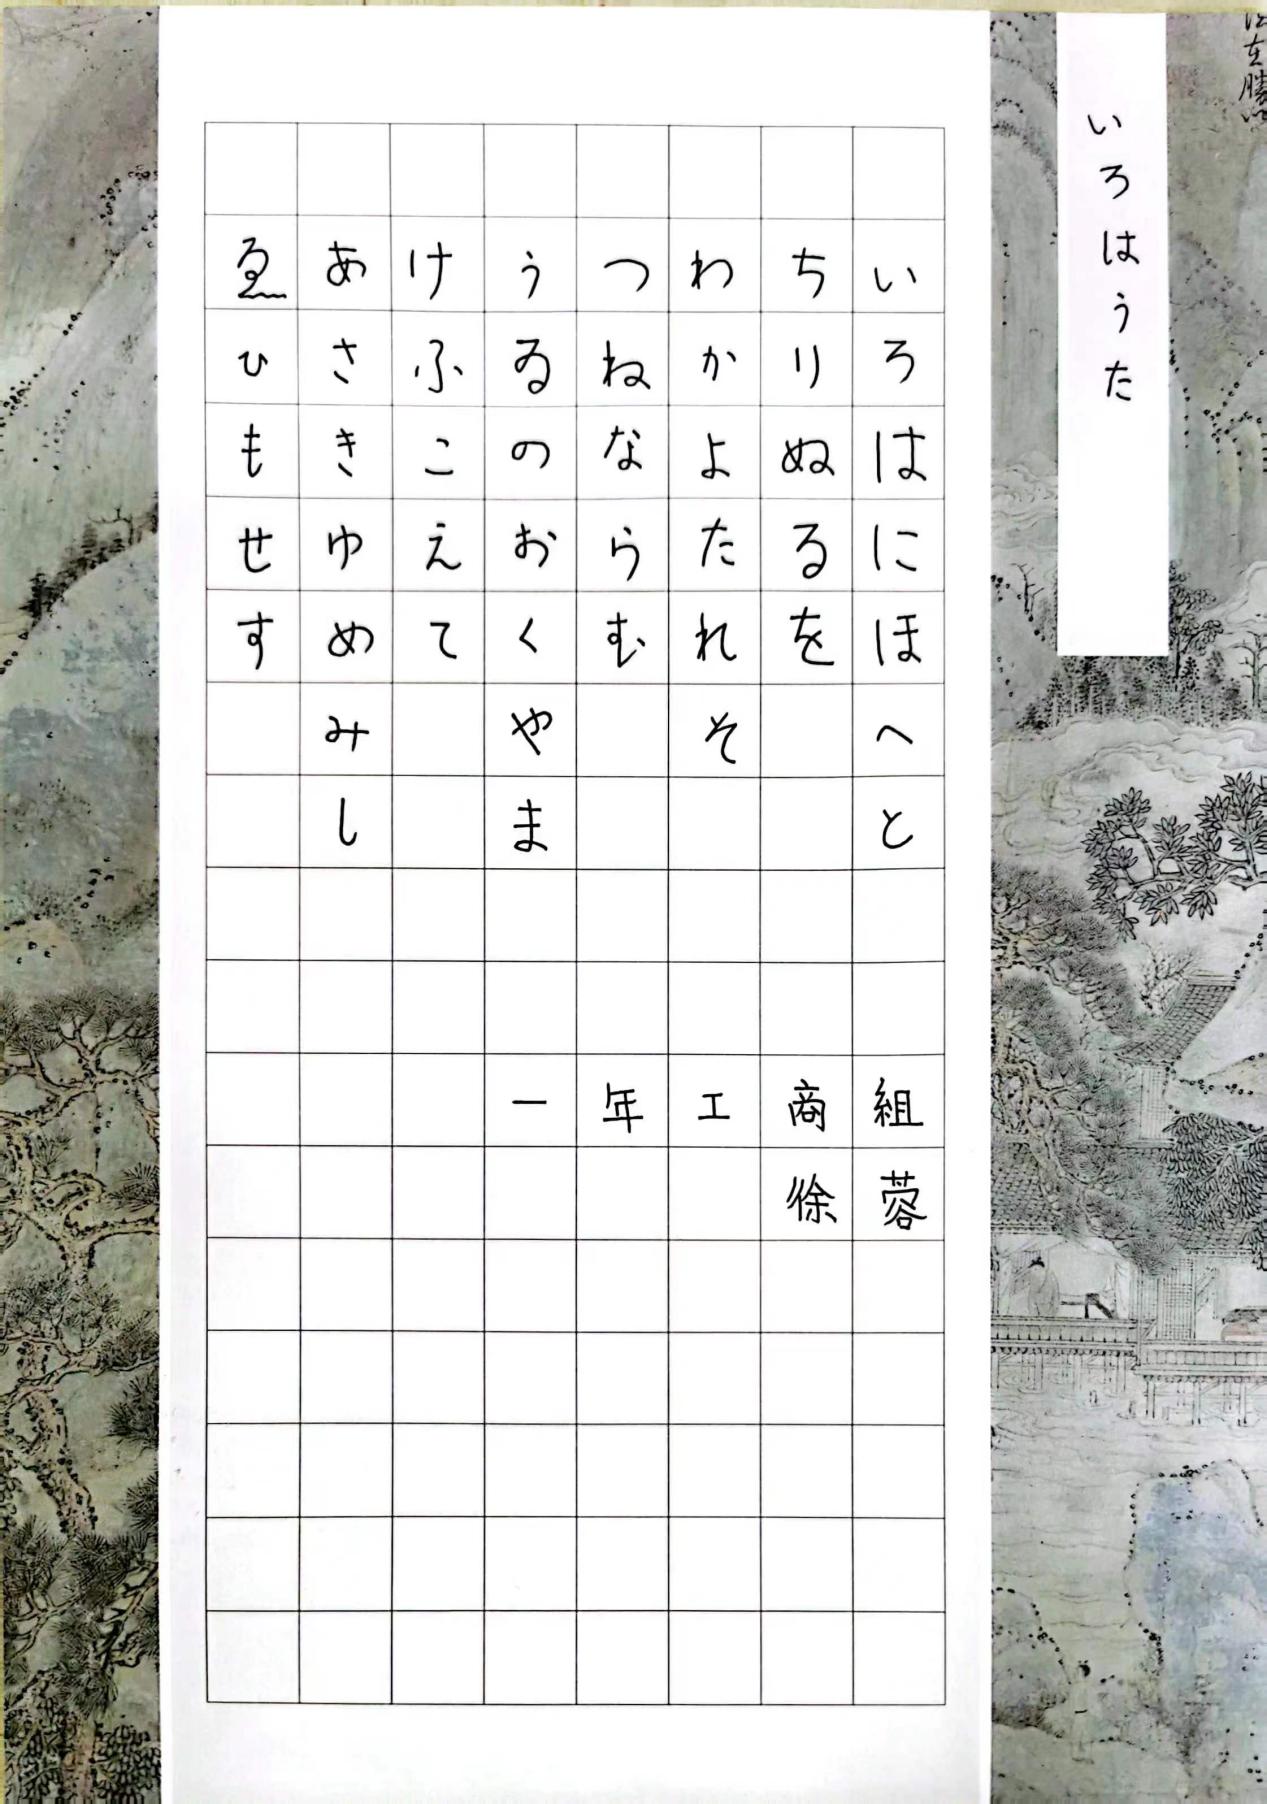 いろはうた
いろはにほへと
ちりぬるを
わかよたれそ
つねならむ
うゐのおくやま
けふこえて
あさきゆめみし
ゑひもせす
一年工商組
徐蓉